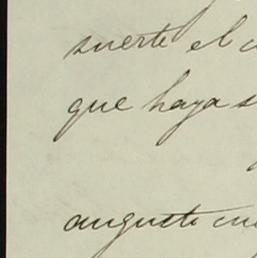 suerte el
que haya
augusto